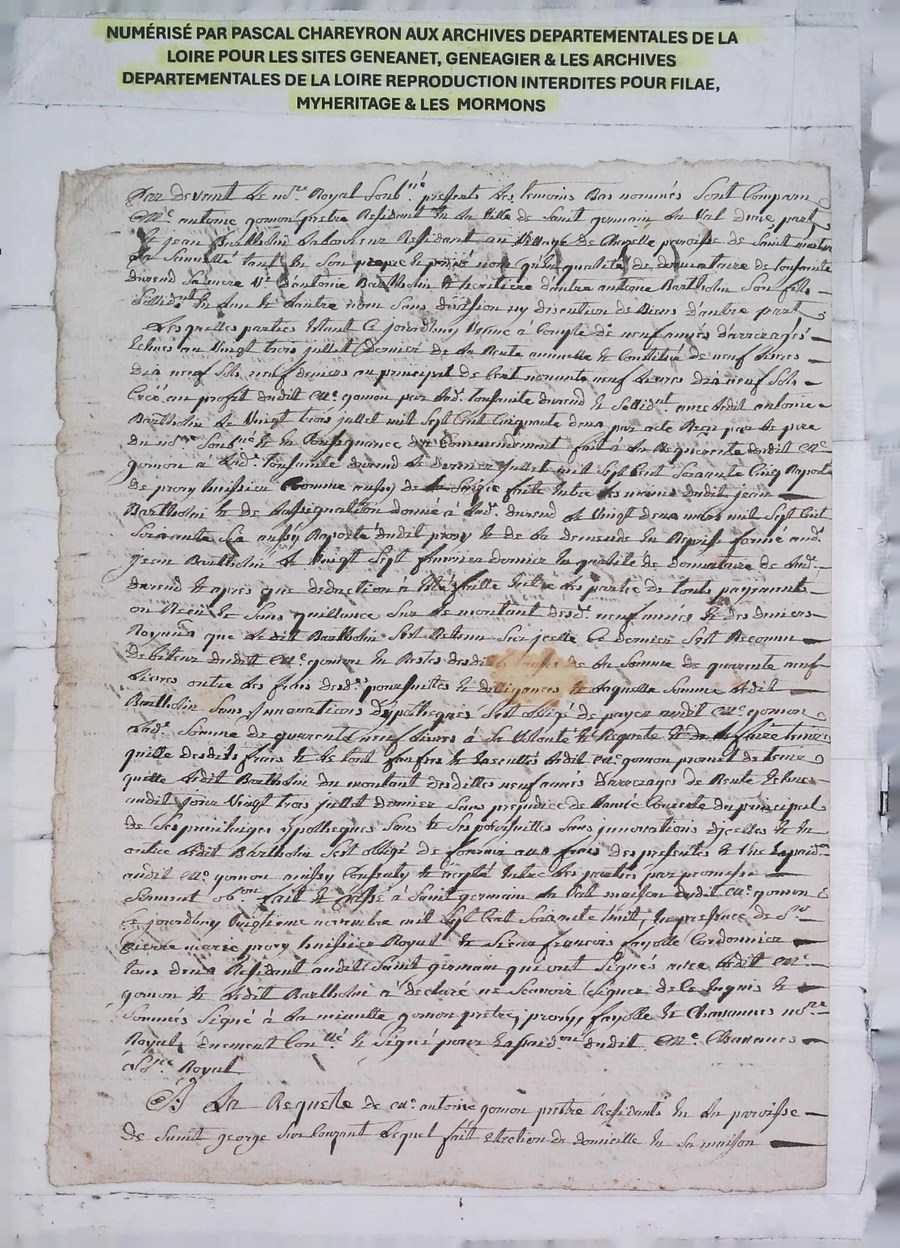 NUMÉRISÉ PAR PASCAL CHAREYRON AUX ARCHIVES DEPARTEMENTALES DE LA
LOIRE POUR LES SITES GENEANET, GENEAGIER & LES ARCHIVES
DEPARTEMENTALES DE LA LOIRE REPRODUCTION INTERDITES POUR FILAE,
MYHERITAGE & LES MORMONS
Par devant le no.re Royal Soub.né presents les temoins Bas nommés Sont Comparu
M.e antoine gomon prêtre Residant En la Ville de Saint germain La Val dune part
Et jean Bartholin Laboureur Residant au Village de paroisse de Saint
La tant En Son propre Et privé nom qu'En qualité de donnataire de
durand Sa mere V.e d'antoine Bartholin Et heritiere d'autre antoine Bartholin Son fils
En Lun Et Lautre nom Sans division ny discution de Biens d'autre part
Lesquelles parties Etant Ce jourdhuy Venue à Compte de neuf années d'arrerages
Echues au Vingt trois juillet dernier de La Rente annuelle Et Constituée de neuf livres
dix neuf Sols neuf deniers au principal de Cent nonante neuf livres dix neuf Sols
Créé au profit dudit M.e gomon par durand Et avec Ledit antoine
Bartholin Le Vingt trois juillet mil Sept Cent Cinquante deux par acte Reçu par Le pere
du no.re Soub.né Et En Consequance du Commendement fait à La Requette dudit M.e
gomon à durand Le dernier juillet mil Sept Cent Soixante Cinq Raporté
de prony huissier Comme aussy de La Saisie faite Entre Les mains dudit jean
Bartholin Et de Lassignation donné à durand Le Vingt deux mars mil Sept Cent
Soixante Six aussy Raporté dudit prony Et de La demande En Reprise formé
jean Bartholin Le Vingt Sept fevrier dernier En qualité de donnataire de
durand Et après que deduction à Eté faitte Entre Les partie de touts payements
ou Reçu Et Sans quittance Sur Le montant desd. neuf années Et des deniers
Royaux que Ledit Bartholin S'est Retenu Sur jcelle Ce dernier S'est Reconnu
debiteur dudit M.e gomon En Restes de La Somme de quarente neuf
livres outre Les frais desd. poursuittes Et diligences Et Laquelle Somme Ledit
Bartholin Sans jnnovations d'ypotheques S'est obligé de payer audit M.e gomon
Lad. Somme de quarente neuf livres à Sa Volonté Et Requete Et de
quitte desdits frais Et Le tout Ledit M.e gomon promet de tenir
quitte Ledit Bartholin du montant desdittes neuf années d'arrerages de Rente Echue
audit jour Vingt trois juillet dernier Sans prejudice de Lannée Courente du principal
de Ses privileiges ypotheques Sans Et Ses poursuittes Sans jnnovations djcelles Et En
outre Ledit Bartholin S'est obligé de fournir aux frais des presentes Et Une Expéd.on
audit M.e gomon aussy Consenty Et accepté Entre Les parties par promesse
Serment ob.on fait Et passé à Saint germain La Val maison dudit M.e gomon
Ce jourdhuy Vingtieme novembre mil Sept Cent Soixante huit, En presence de S.r
pierre marie prony huissier Royal Et Sieur françois fayolle Cordonnier
tous deux Residant audit Saint germain qui ont Signés avec Ledit M.e
gomon Et Ledit Bartholin à declaré ne Scavoir Signer de Ce Enquis Et
Sommés Signé à La minutte gomon prêtre, prony, fayolle Et Chavannes no.re
Royal, duement Con.llé Et Signé pour Expéd.on dudit M.e Chavannes
Royal
A La Requeste de M.e antoine gomon prêtre Residants En La paroisse
de Saint george Sur Couzant Lequel fait Election de domicille En Sa maison